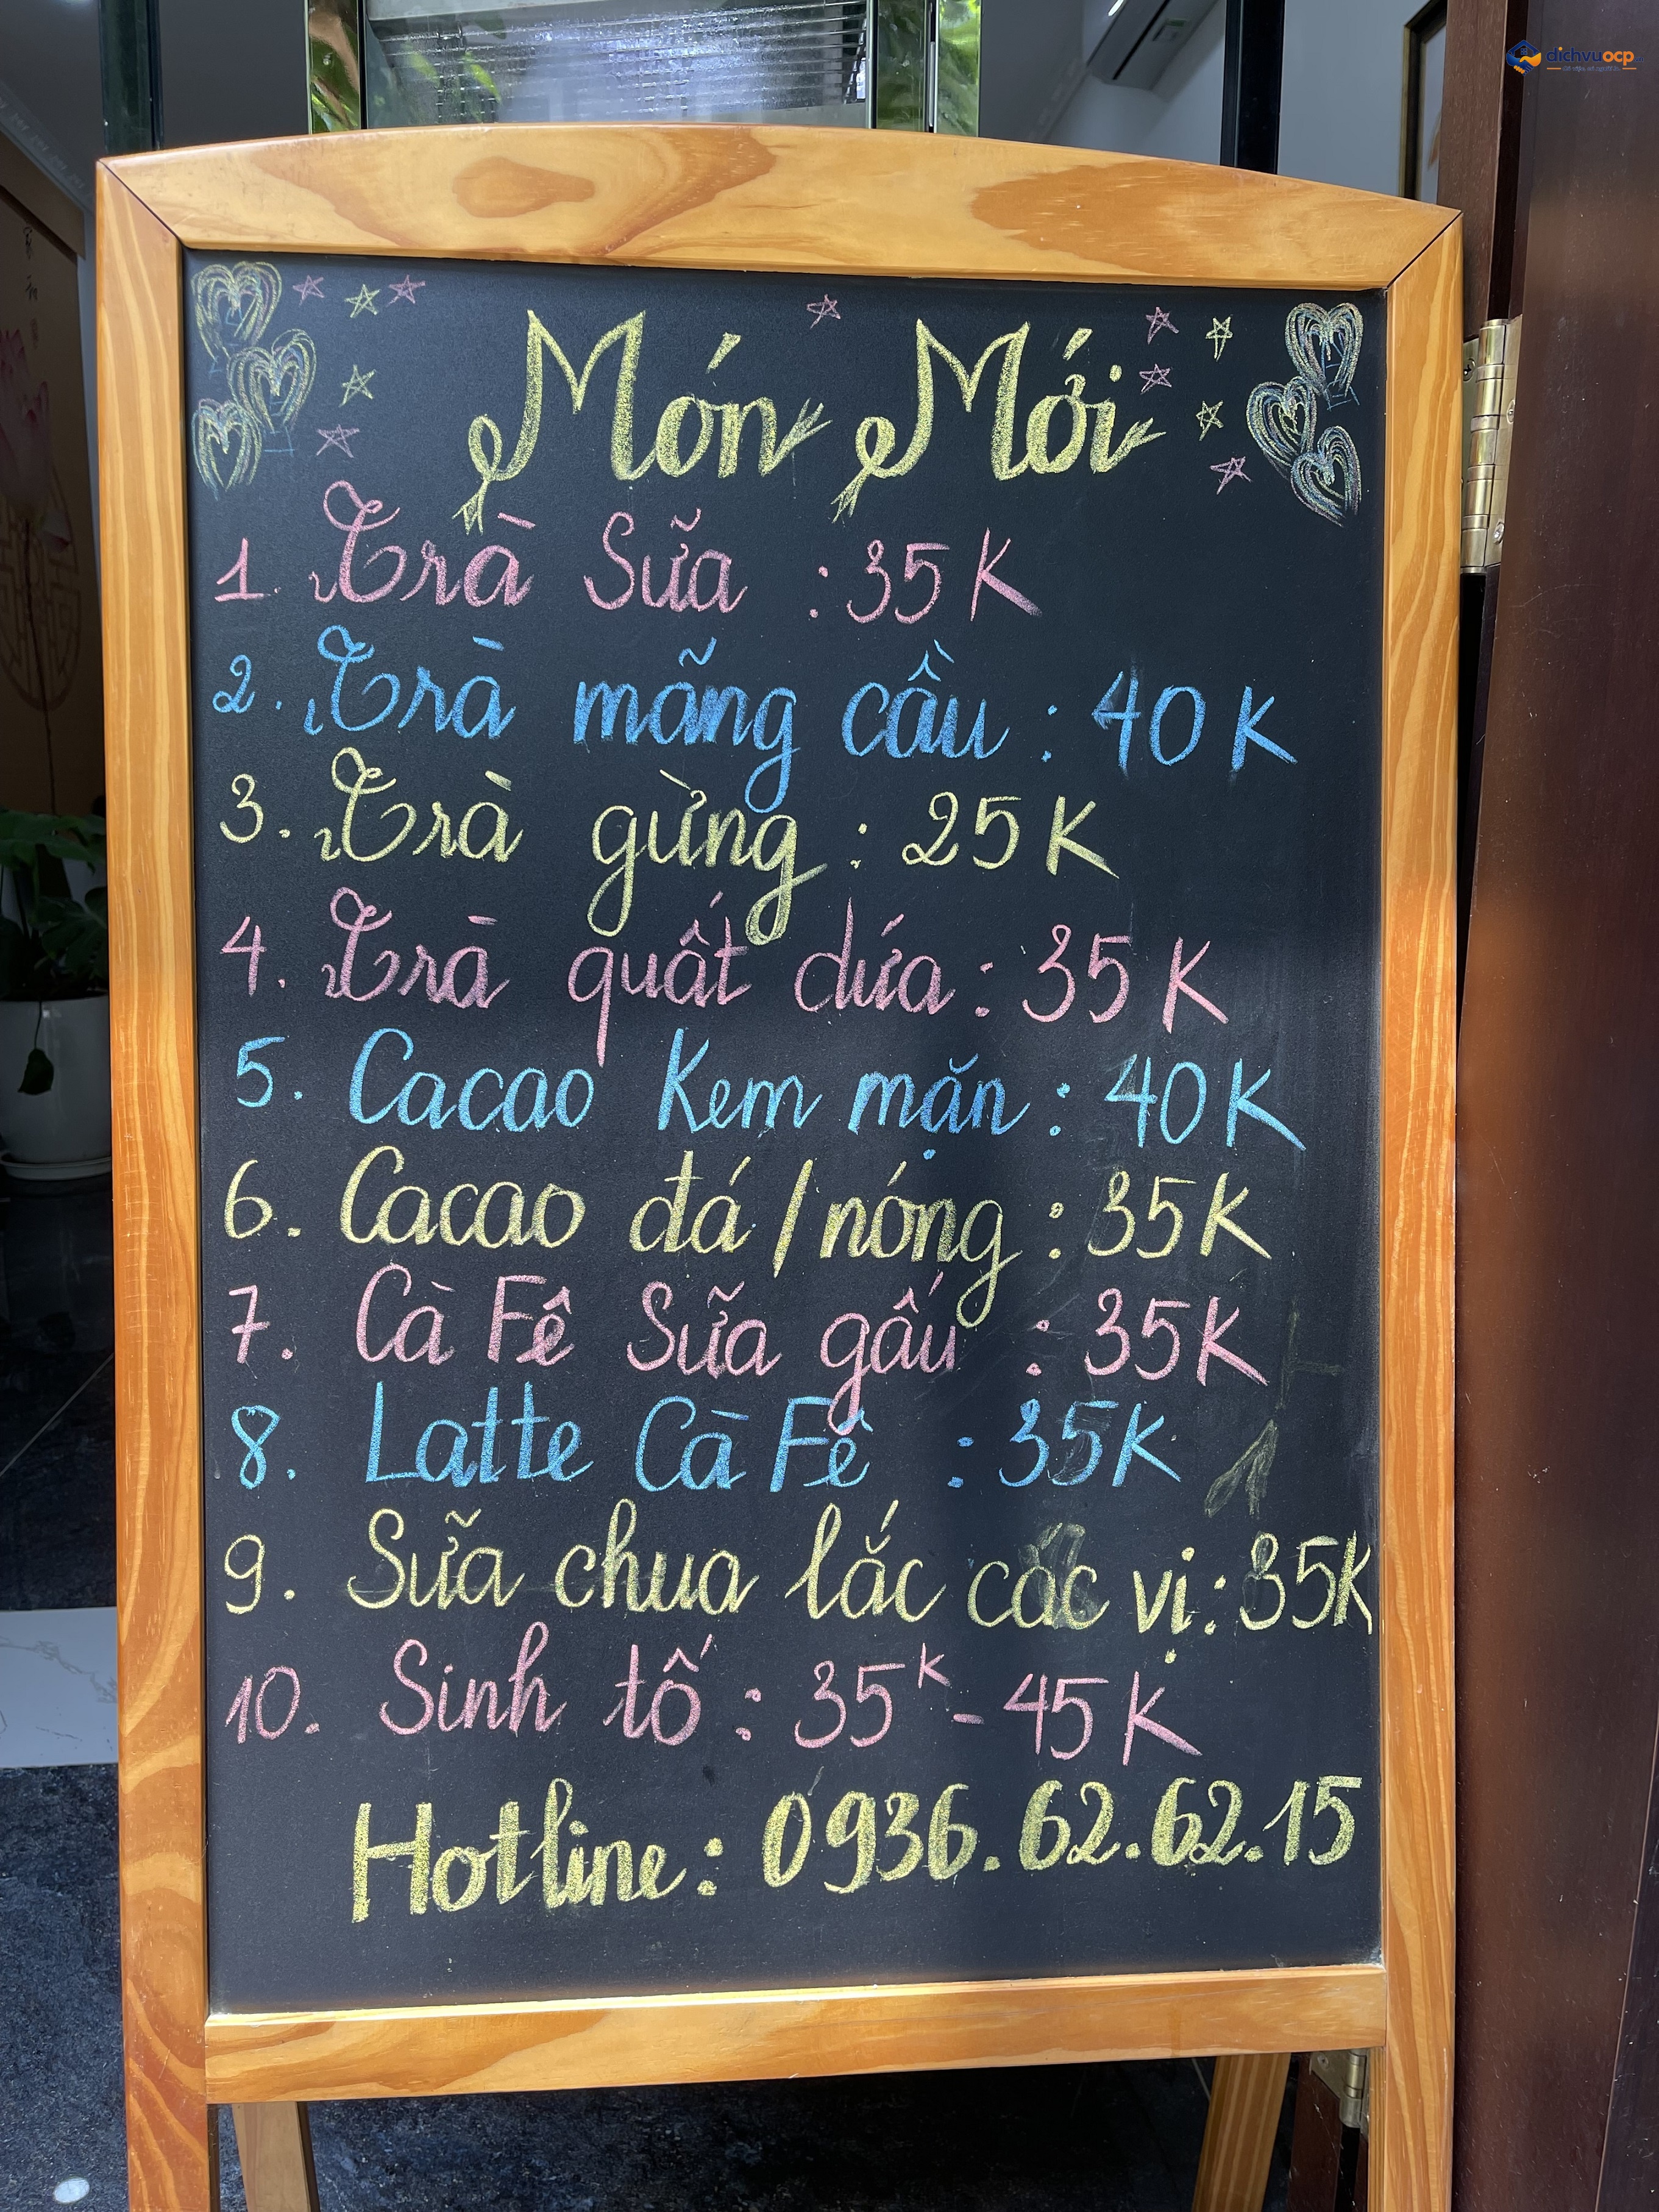 dichvuocp
Món Mới
1. Trà Sữa : 35K
2. Trà mãng cầu : 40K
3. Trà gừng : 25K
4. Trà quất dứa : 35K
5. Cacao Kem mặn : 40K
6. Cacao đá / nóng : 35K
7. Cà Fê Sữa gấu : 35K
8. Latte Cà Fê : 35K
9. Sữa chua lắc các vị : 35K
10. Sinh tố : 35K - 45K
Hotline : 0936.62.62.15